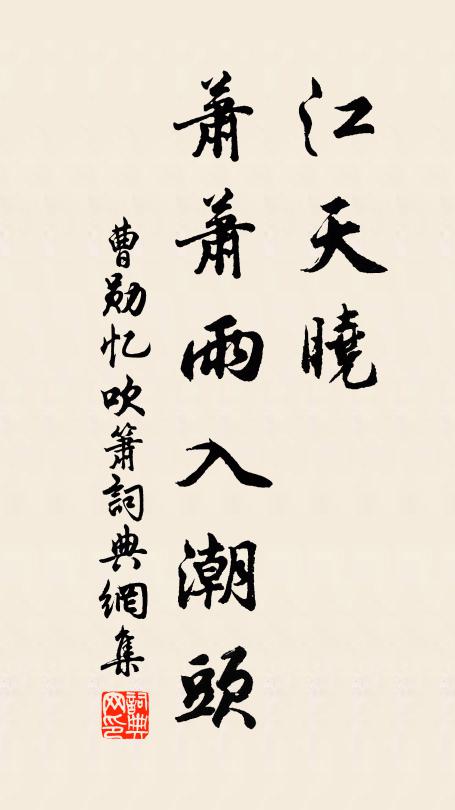 江天曉
蕭蕭雨入潮頭
曹勛忆吹簫詞典網集
詞典网印